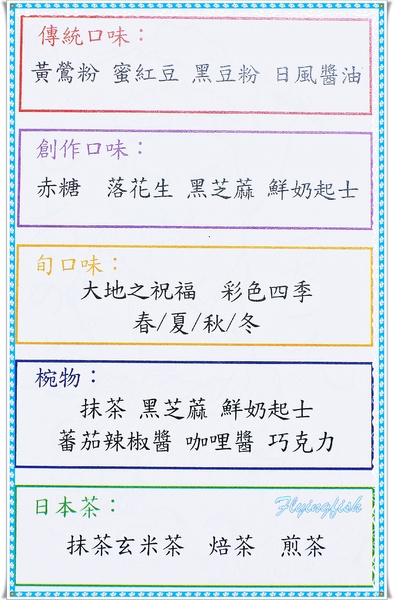 傳統口味：
黃鶯粉 蜜紅豆 黑豆粉 日風醬油
創作口味：
赤糖 落花生 黑芝蔴 鮮奶起士
旬口味：
大地之祝福 彩色四季
春/夏/秋/冬
椀物：
抹茶 黑芝蔴 鮮奶起士
蕃茄辣椒醬 咖哩醬 巧克力
日本茶：
Flyingfish
抹茶玄米茶 焙茶 煎茶